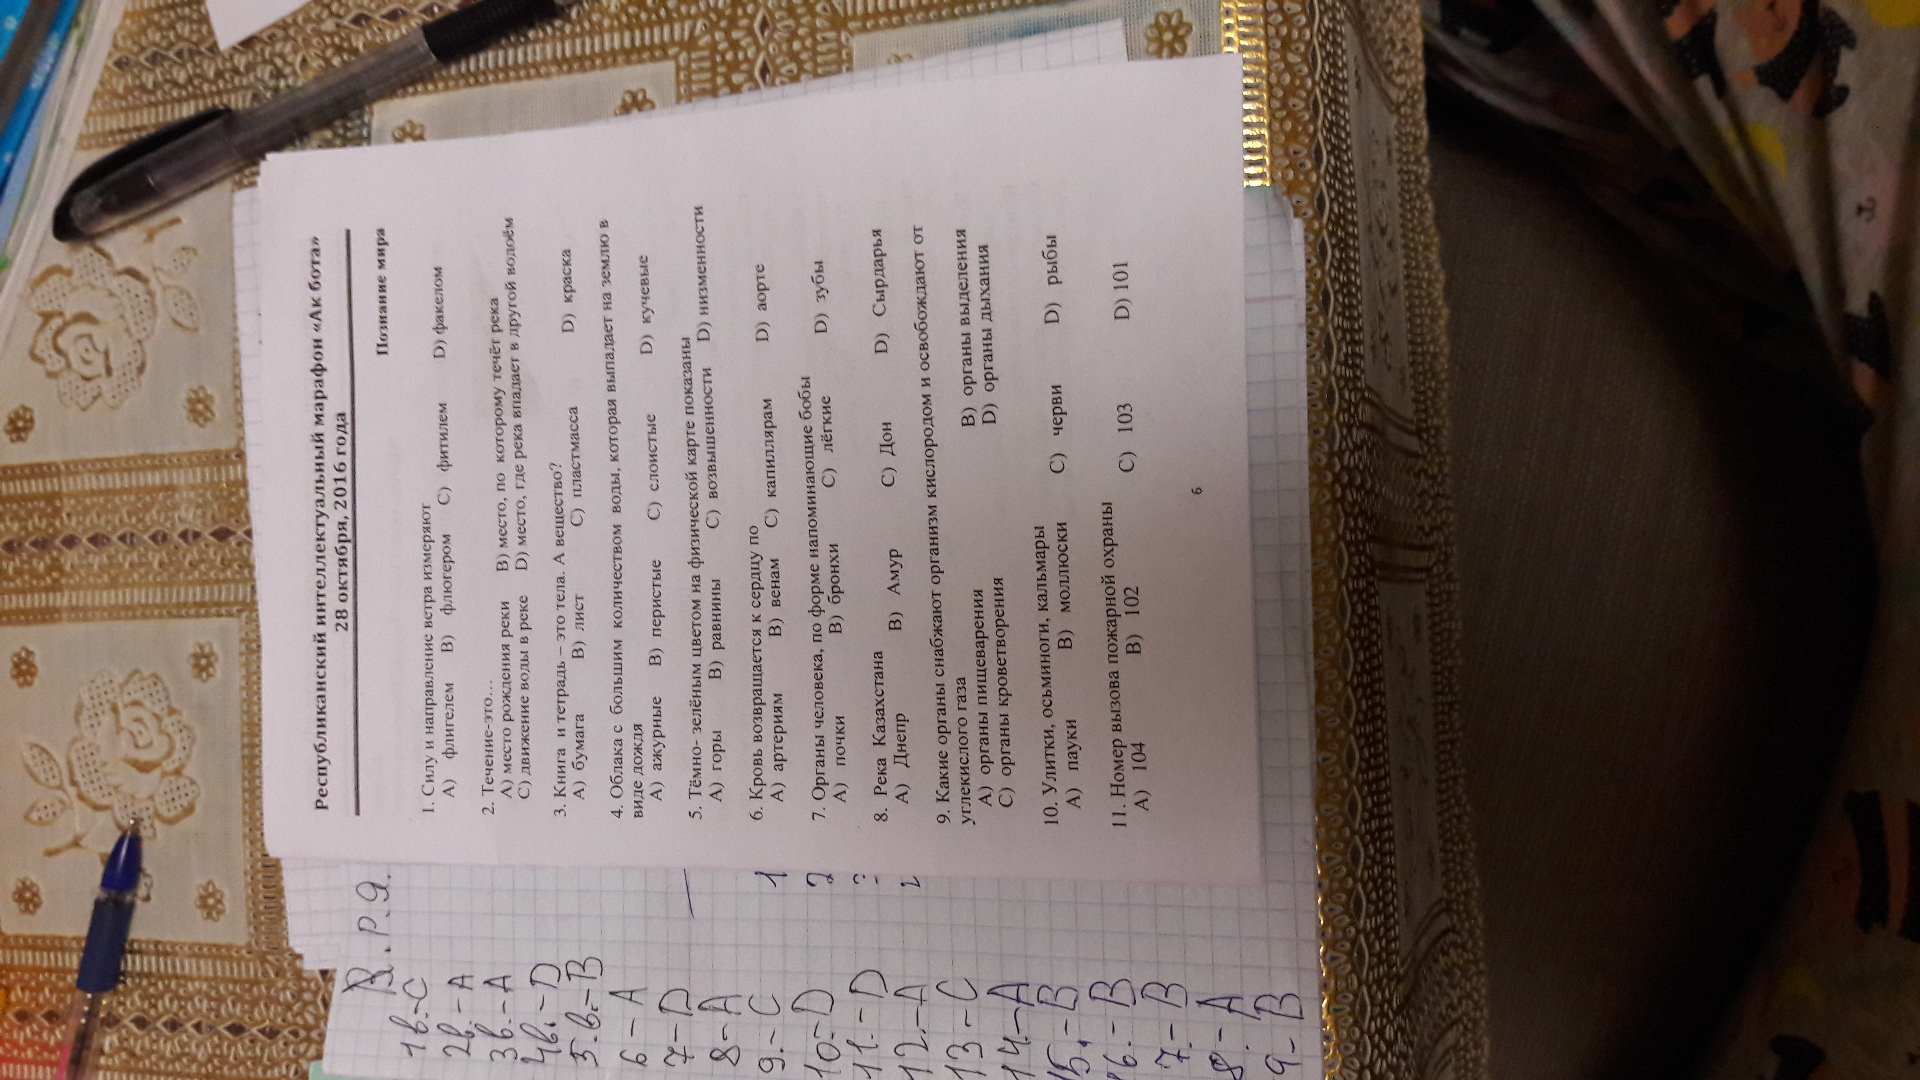 Республиканский интеллектуальный марафон «Ак бота»
28 октября, 2016 года
Познание мира
1. Силу и направление ветра измеряют
A) флигелем B) флюгером C) фитилем D) факелом
2. Течение-это…
A) место рождения реки B) место, по которому течёт река
C) движение воды в реке D) место, где река впадает в другой водоём
3. Книга и тетрадь – это тела. А вещество?
A) бумага B) лист C) пластмасса D) краска
4. Облака с большим количеством воды, которая выпадает на землю в
виде дождя
A) ажурные B) перистые C) слоистые D) кучевые
5. Тёмно- зелёным цветом на физической карте показаны
A) горы B) равнины C) возвышенности D) низменности
6. Кровь возвращается к сердцу по
A) артериям B) венам C) капиллярам D) аорте
7. Органы человека, по форме напоминающие бобы
A) почки B) бронхи C) лёгкие D) зубы
8. Река Казахстана
A) Днепр B) Амур C) Дон D) Сырдарья
9. Какие органы снабжают организм кислородом и освобождают от
углекислого газа
A) органы пищеварения B) органы выделения
C) органы кроветворения D) органы дыхания
10. Улитки, осьминоги, кальмары
A) пауки B) моллюски C) черви D) рыбы
11. Номер вызова пожарной охраны
A) 104 B) 102 C) 103 D) 101
6
В.Р.Я.
1в.-C
2в.-A
3в.-A
4в.-D
5.в.-B
6-A
7-D
8-A
9.-C
10.-D
11.-D
12.-A
13-C
14.-A
15.-B
16.-B
7.-B
8.-A
9-B
1
2
?
2